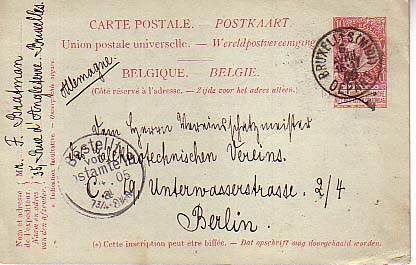 CARTE POSTALE. – POSTKAART.
Union postale universelle. – Wereldpostvereeniging
BELGIQUE. – BELGIE.
(Côté réservé à l'adresse. – Zijde voor het adres alléén.)
Allemagne.
BRUXELLES (NORD)
DEPART
Dem Herrn Vereinsschatzmeister
des Elektrotechnischen Vereins.
Bestellt
vom
Postamte
05
Unterwasserstrasse. 2/4
Berlin.
(*) Cette inscription peut être biffée. – Dat opschrift mag doorgehaald worden.
Nom et adresse
de l'expéditeur.
Naam en adres
van den afzender.
Mr. F.
37 Rue d'Angleterre - Bruxelles
(*) Indication facultative. – Onverplichte opgave.